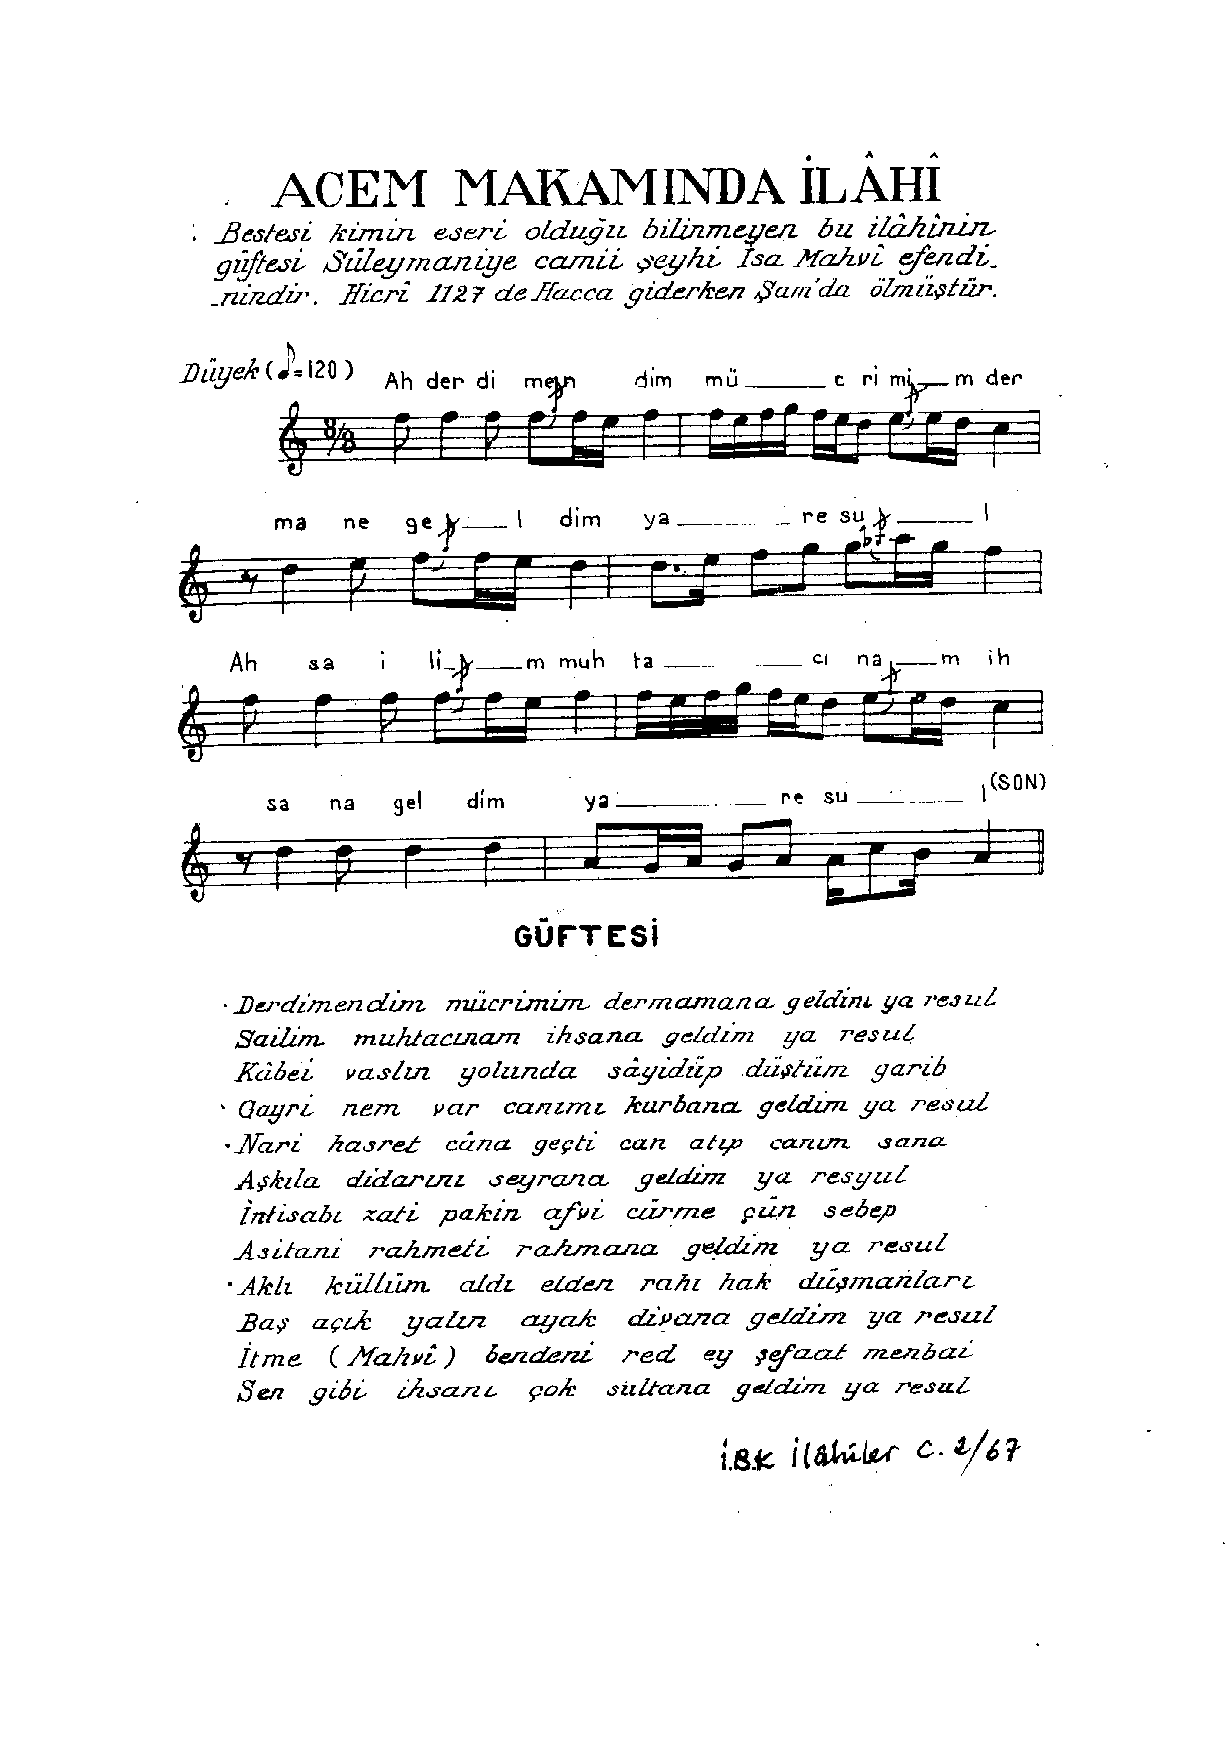 ACEM MAKAMINDA İLÂHÎ
Bestesi kimin eseri olduğu bilinmeyen bu ilâhînin
güftesi Süleymaniye camii şeyhi İsa Mahvî efendi_
_nindir. Hicrî 1127 de Hacca giderken Şam'da ölmüştür.
Düyek (♪=120) Ah der di men dim mü____c ri mi__m der
8/8
ma ne ge__l dim ya____re su____l
Ah sa i li__m muh ta____cı na__m ih
sa na gel dim ya____re su____l (SON)
GÜFTESİ
Derdimendim mücrimim dermamana geldim ya resul
Sailim muhtacınam ihsana geldim ya resul
Kâbei vaslın yolunda sâyidüp düştüm garib
Gayri nem var canımı kurbana geldim ya resul
Nari hasret câna geçti can atıp canım sana
Aşkıla didarını seyrana geldim ya resyul
İntisabı zati pakin afvi cürme çün sebep
Asitani rahmeti rahmana geldim ya resul
Aklı küllüm aldı elden rahı hak düşmanları
Baş açık yalın ayak divana geldim ya resul
İtme (Mahvî) bendeni red ey şefaat menbai
Sen gibi ihsanı çok sultana geldim ya resul
İ.B.K İlâhiler C. 2/67